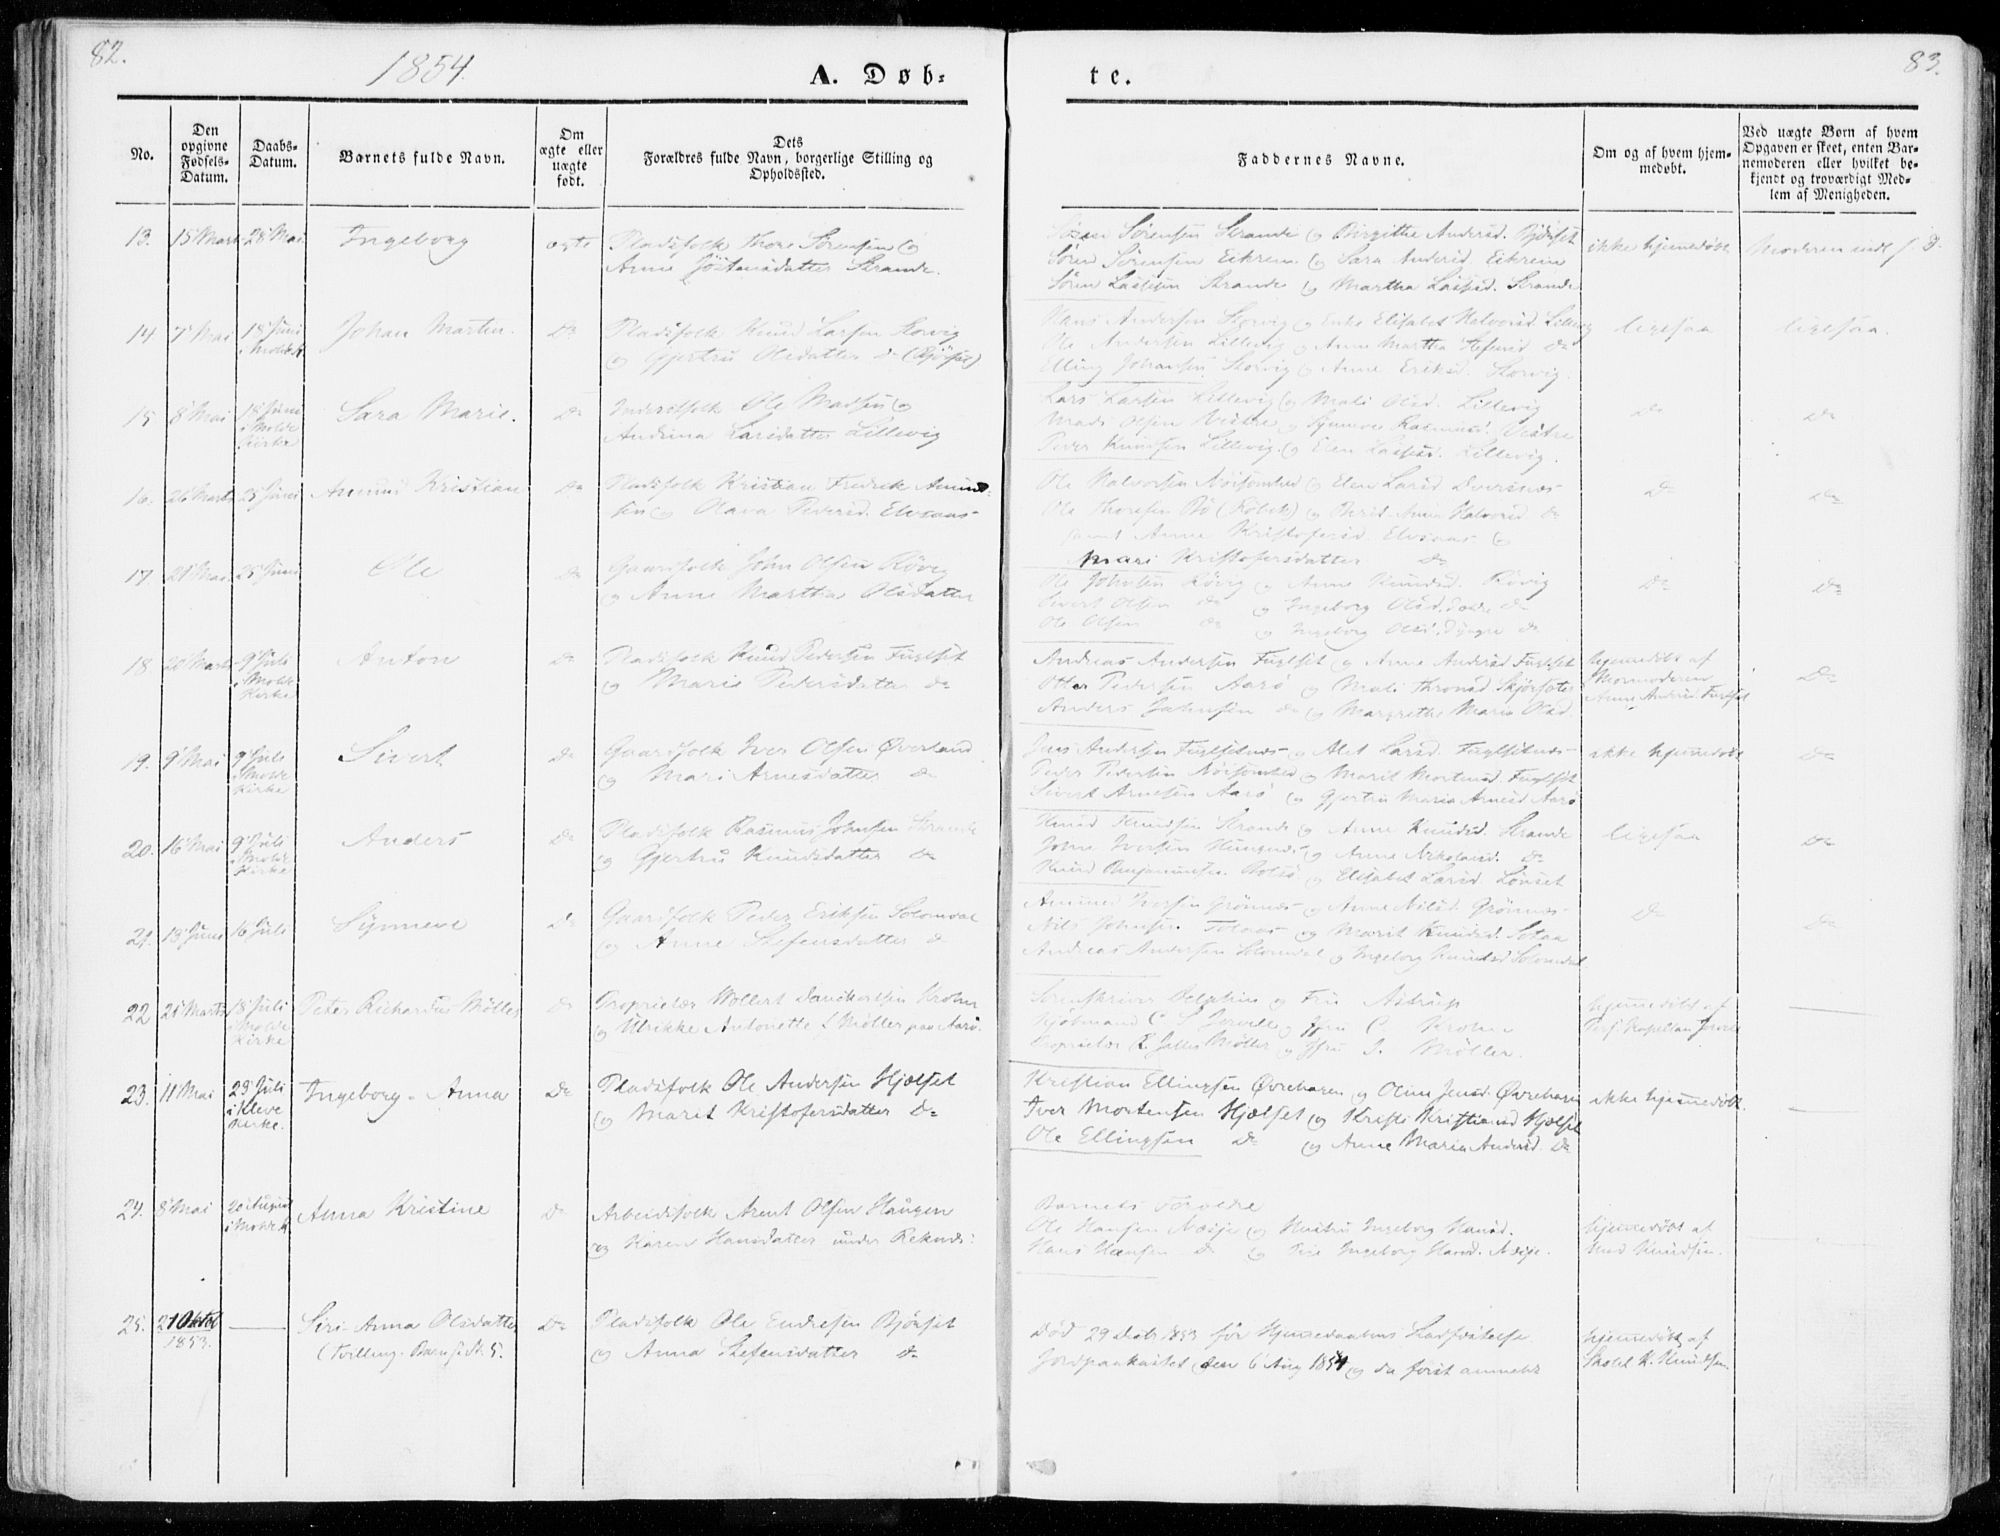 82.
1854.
A. Døb-
te.
83.
No.
Den opgivne Fødsels-Datum.
Daabs-Datum.
Barnets fulde Navn.
Om ægte eller uægte født.
Dets Forældres fulde Navn, borgerlige Stilling og Opholdssted.
Faddernes Navne.
Om og af hvem hjemmedøbt.
Ved uægte Børn af hvem Opgaven er skeet, enten Barnemoderen eller hvilket bekjendt og troværdigt Medlem af Menigheden.
13. 15 Marts 28 Mai Ingeborg ægte Pladsfolk Thore Sørensen og
Anne Jöstensdatter Strande.
Sørensen Strande og Birgitte Andersd.
Søren Sørensen Eikrem og Sara Andersd. Eikrem
Søren Lassesen Strande og Martha Lassesd. Strande
ikke hjemmedøbt Moderen
14. 7 Mai 18 Juni i Molde K. Johan Martin. Do Pladsfolk Knud Larsen Storvig
og Gjertru Olsdatter do (Bjørset)
Hans Andersen Storvig og Enke Elisabet Halvorsd. Lillevig
Ole Andersen Lillevig og Anne Martha Stefensd. Do
Elling Johansen Storvig og Anne Eriksd. Storvig.
ligesaa ligesaa.
15 8 Mai 18 Juni i Molde Kirke Sara Marie. Do Inderstfolk Ole Madsen og
Andrina Larsdatter Lillevig
Lars Larsen Lillevig og Mali Olsd. Lillevig
Mads Olsen Vestre og Synneve Rasmusd. Vestre
Peder Knudsen Lillevig og Elen Lassesd. Lillevig.
Do Do
16. 26 Marts 25 Juni Amund Kristian Do Pladsfolk Kristian Fredrik Amund-
sen og Olava Pedersd. Elvsaas
Ole Halvorsen Nøisomhed og Elen Larsd. Dversnæs
Ole Thoresen Bö og Berit Anne Halvorsd. do
samt Anne Kristofersd. Elvsaas og
Mari Kristofersdatter do
Do Do
17. 21 Mai 25 Juni Ole Do Gaardfolk John Olsen Røvig
og Anne Martha Olsdatter
Ole Johnsen Røvig og Anne Knudsd. Røvig
Sivert Olsen do og Ingeborg Olsd. d ældre do
Ole Olsen do og Ingeborg Olsd. d yngre do
Do Do
18. 20 Marts 9 Juli i Molde Kirke Anton Do Pladsfolk Knud Pedersen Fuglset
og Marie Pedersdatter do
Andreas Andersen Fuglset og Anne Andersd. Fuglset
Otter Pedersen Aarö og Mali Thronsd.
Anders Johnsen do og Margrethe Maria Olsd.
hjemmedøbt af
Mormoderen
Anne Andersd. Fuglset
Do
19. 9 Mai 9 Juli i Molde Kirke Sivert Do Gaardfolk Iver Olsen Øverland
og Mari Arnesdatter do
Jens Andersen Fuglsetnes og Alet Larsd. Fuglsetnes
Peder Pedersen Nøisomhed og Marit Mortensd. Fuglset
Sivert Arnesen Aarö og Gjertru Maria Arnesd. Aarö
ikke hjemmedøbt Do
20. 16 Mai 9 Juli i Molde Kirke Anders Do Pladsfolk Rasmus Johnsen Strande
og Gjertru Knudsdatter do
Knud Knudsen Strande og Anne Knudsd. Strande
Iversen og Anne Nikolaisd. do
Knud Benjaminsen Bolsö og Elisabet Larsd. Lönset
ligesaa do
21. 13 Juni 16 Juli Synneve Do Gaardfolk Peder Eriksen Solomdal
og Anne Stefensdatter do
Amund Iversen Grönnes og Anne Nilsd. Grönnes
Nils Johnsen Tolaas og Marit Knudsd.
Andreas Andersen Solomdal og Ingeborg Knudsd. Solomdal
Do Do
22 25 Marts 18 Juli i Molde Kirke Peter Richardus Møller do Proprietær Wollert Danckertsen Krohn
og Ulrikke Antonette f. Møller paa Aarö.
Sorenskriver Delphin og Fru Astrup
Kjöbmand C. S. og Jfru C. Krohn
Proprietær Møller og Jfru J. Møller.
hjemmedøbt af
Pers. Kapellan
23. 11 Mai 23 Juli i Kleve Kirke. Ingeborg-Anna Do Pladsfolk Ole Andersen Hjelset
og Marit Kristofersdatter Do
Kristian Ellingsen Øvrehaven og Olina Jensd. Øvrehaven
Iver Mortensen Hjelset og Kristi Kristiansd Hjelset
Ole Ellingsen Do og Anne Maria Andersd. Do
ikke hjemmedøbt.
24. 8 Mai 20 August i Molde K. Anna Kristine Do Arbeidsfolk Arent Olsen Haugen
og Karen Hansdatter under Reknæs:
Barnets Forældre
Ole Hansen Næsje og Hustru Ingeborg Hansd.
Hans Hansen do og Pige Ingeborg Hansd. Næsje.
hjemmedøbt af
Knudsen.
25. 21 Oktob 1853. Siri-Anna Olsdatter Do Pladsfolk Ole Endresen Bjørset
(Tvilling- Barn se No 5. og Anna Stefensdatter do
Död 29 Octb. 1853 før Hjemmedaabens Stadfæstelse
Jordpaakastet den 6 Aug 1854 og da først anmeldt
hjemmedøbt af
Skolel. K. Knudsen.